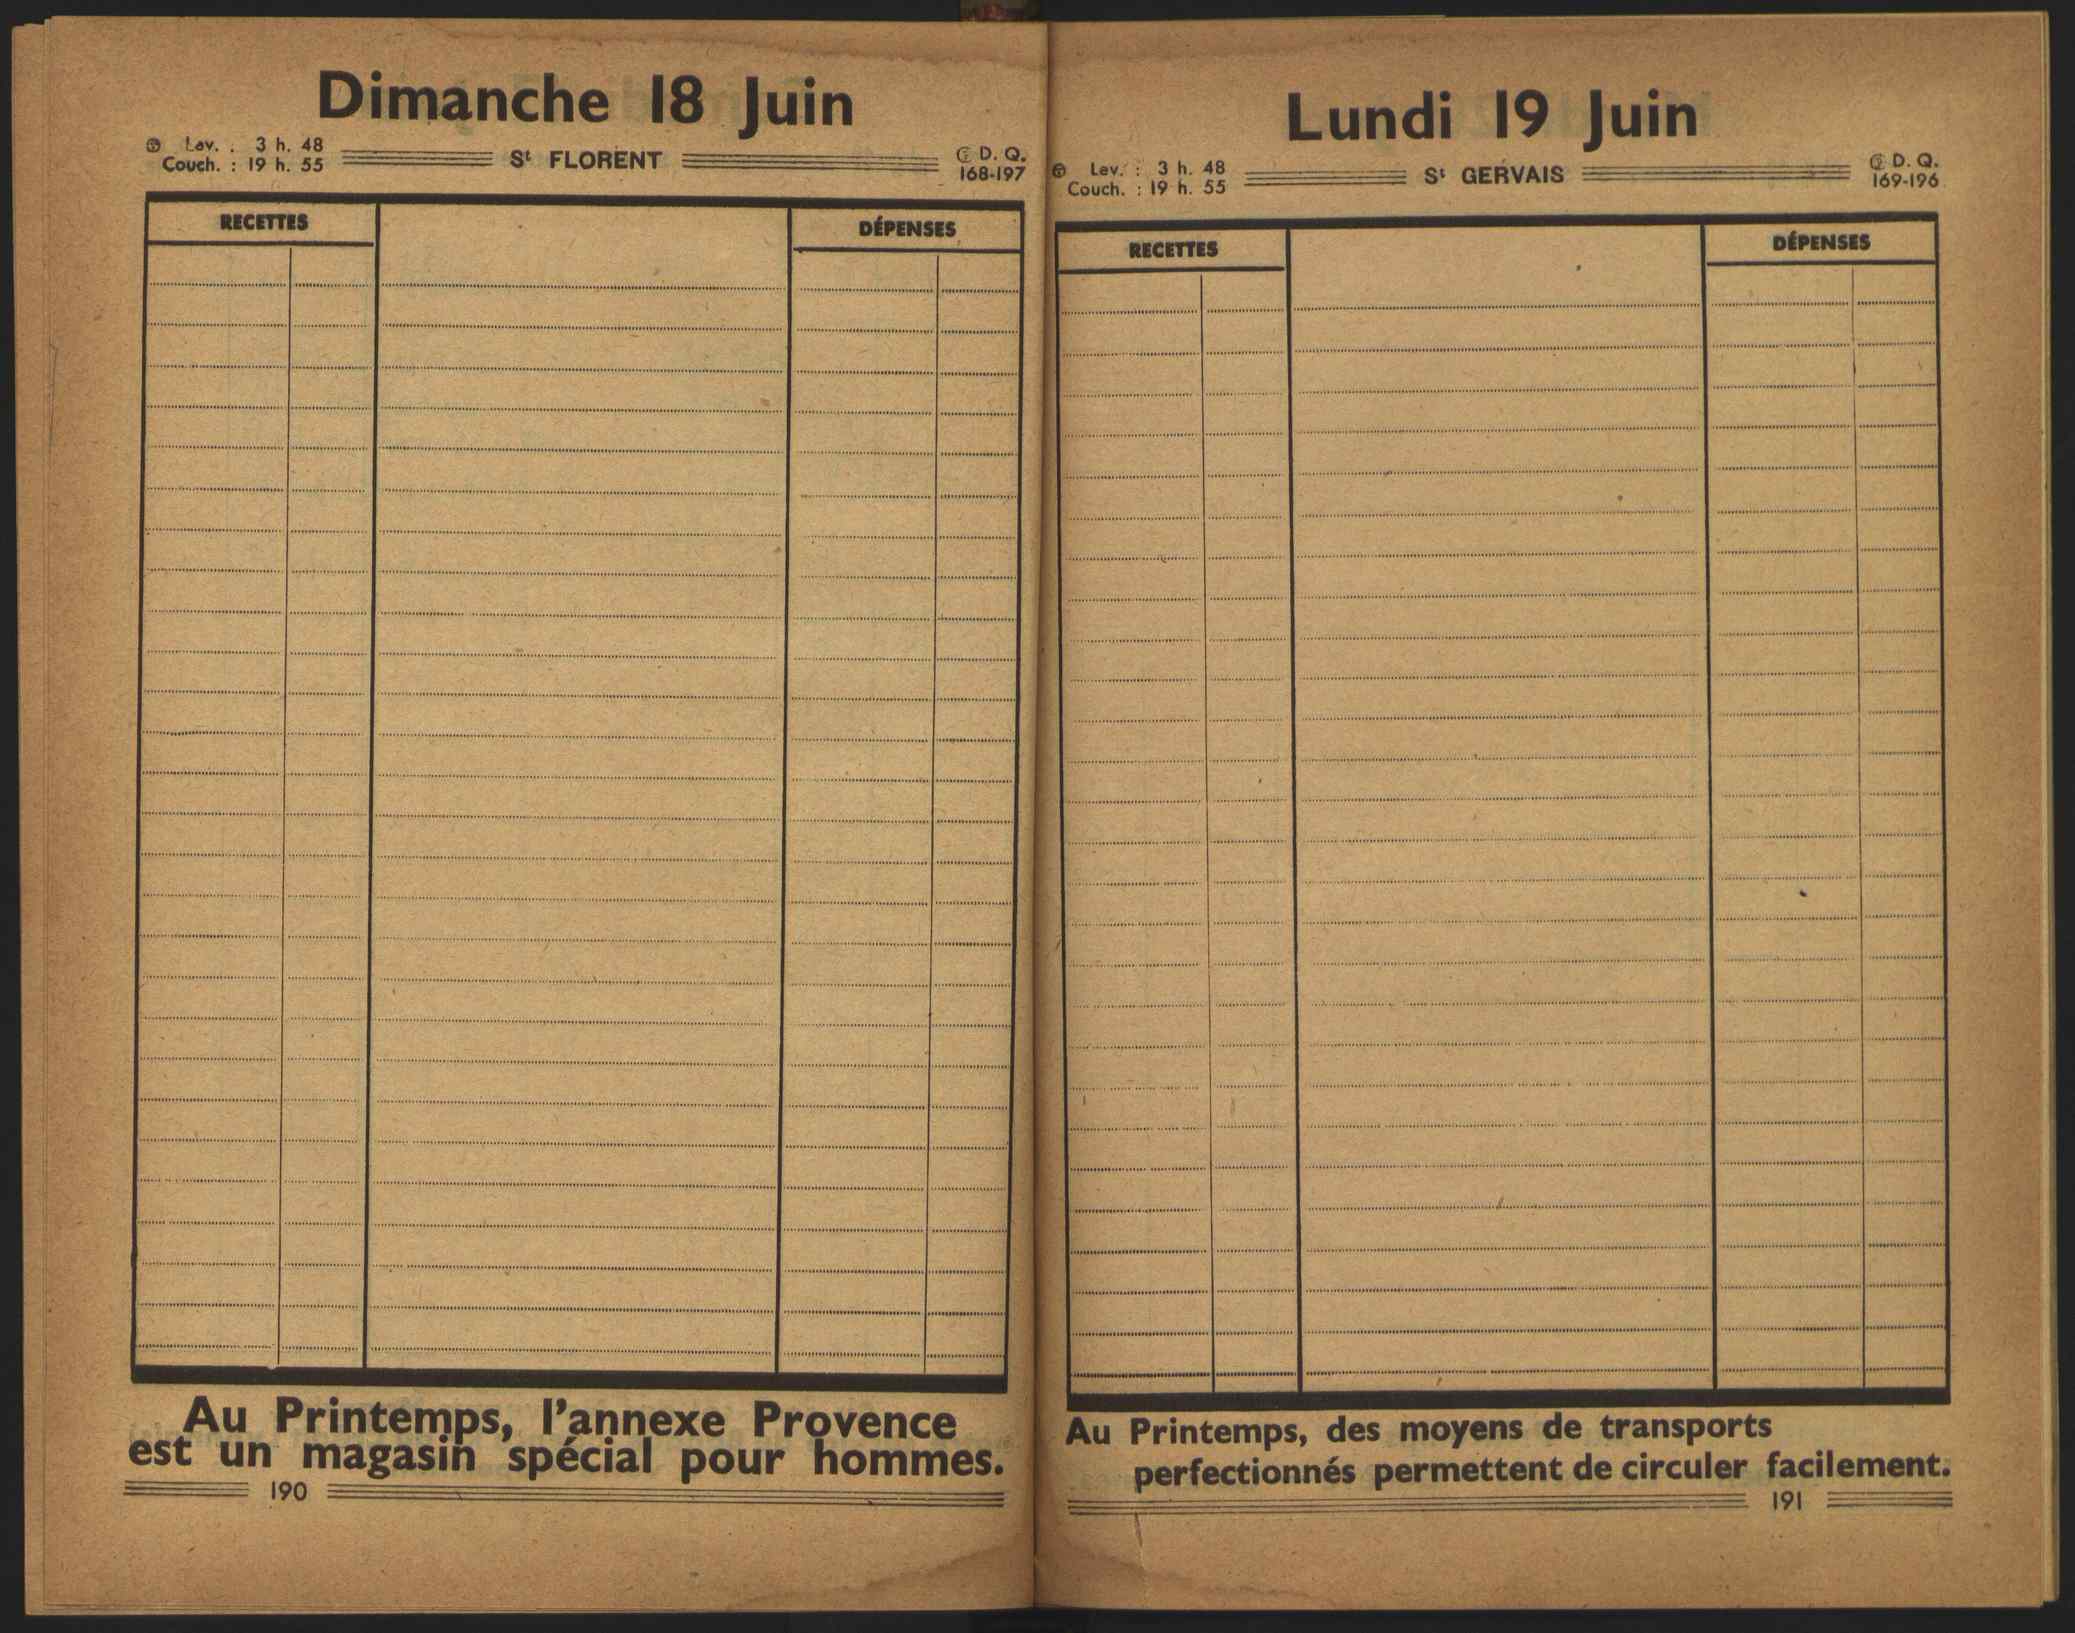 Dimanche 18 Juin
Lev. : 3 h. 48
Couch. : 19 h. 55
St FLORENT
D. Q.
168-197
RECETTES
DÉPENSES
Au Printemps, l'annexe Provence
est un magasin spécial pour hommes.
190
Lundi 19 Juin
Lev. : 3 h. 48
Couch. : 19 h. 55
St GERVAIS
D. Q.
169-196
RECETTES
DÉPENSES
Au Printemps, des moyens de transports
perfectionnés permettent de circuler facilement.
191